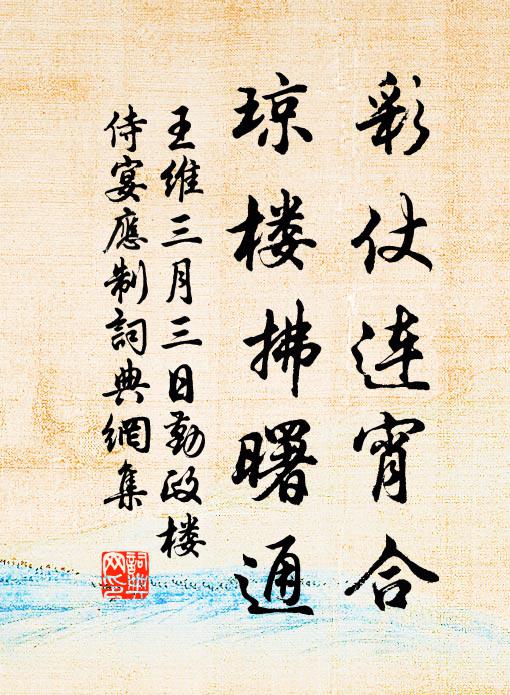 彩仗连宵合
琼楼拂曙通
王维三月三日勤政楼
侍宴應制詞典網集